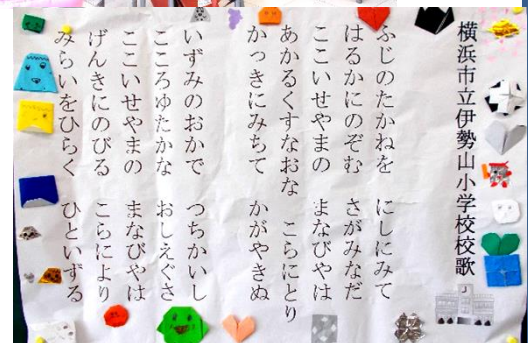 横浜市立伊勢山小学校校歌
ふじのたかねを にしにみて
はるかにのぞむ さがみなだ
ここいせやまの まなびやは
あかるくすなおな こらにとり
かっきにみちて かがやきぬ
いずみのおかで つちかいし
こころゆたかな おしえぐさ
ここいせやまの まなびやは
げんきにのびる こらにより
みらいをひらく ひといずる